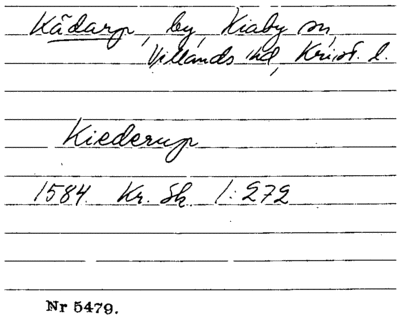 Kådarp, by, Kiaby sn,
Villands hd, Krist. l.
Kiederup
1584 Kr. Sk. 1:272
Nr 5479.